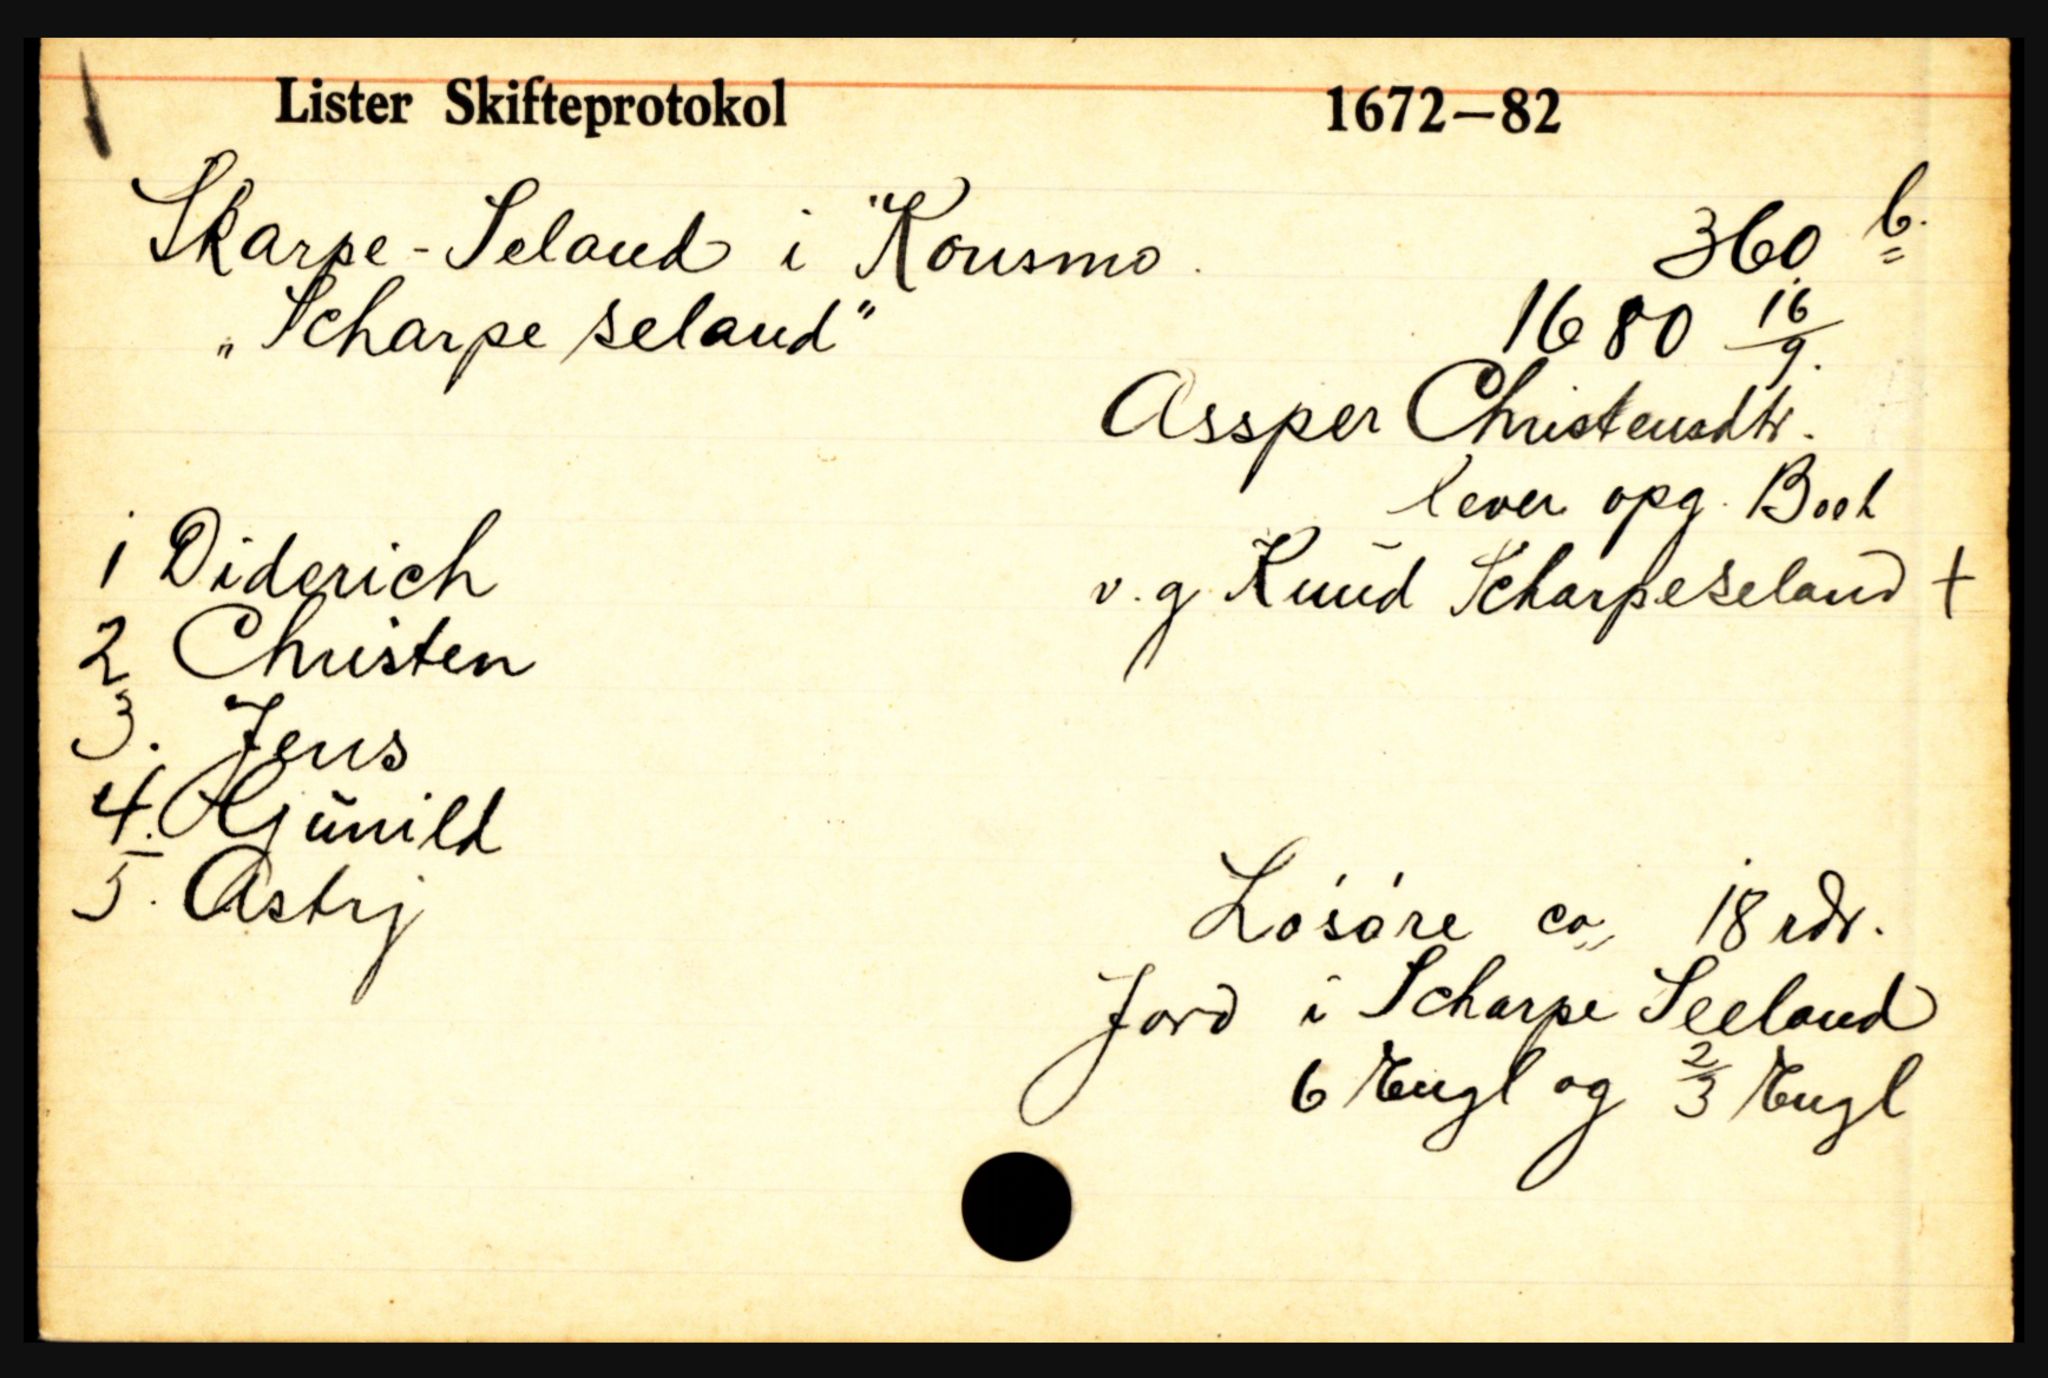 Lister Skifteprotokol 1672—82
Skarpe-Seland i Konsmo. 360 b.
„Scharpe seland" 1680 16/9.
Assper Christensdtr.
lever opg. Boet
1 Diderich
v. g. Knud Scharpeseland +
2 Christen
3. Jens
4. Gjunild
5. Astrj
Løsøre ca 18 rdr.
Jord i Scharpe Seeland
6 Engl og 2/3 Engl